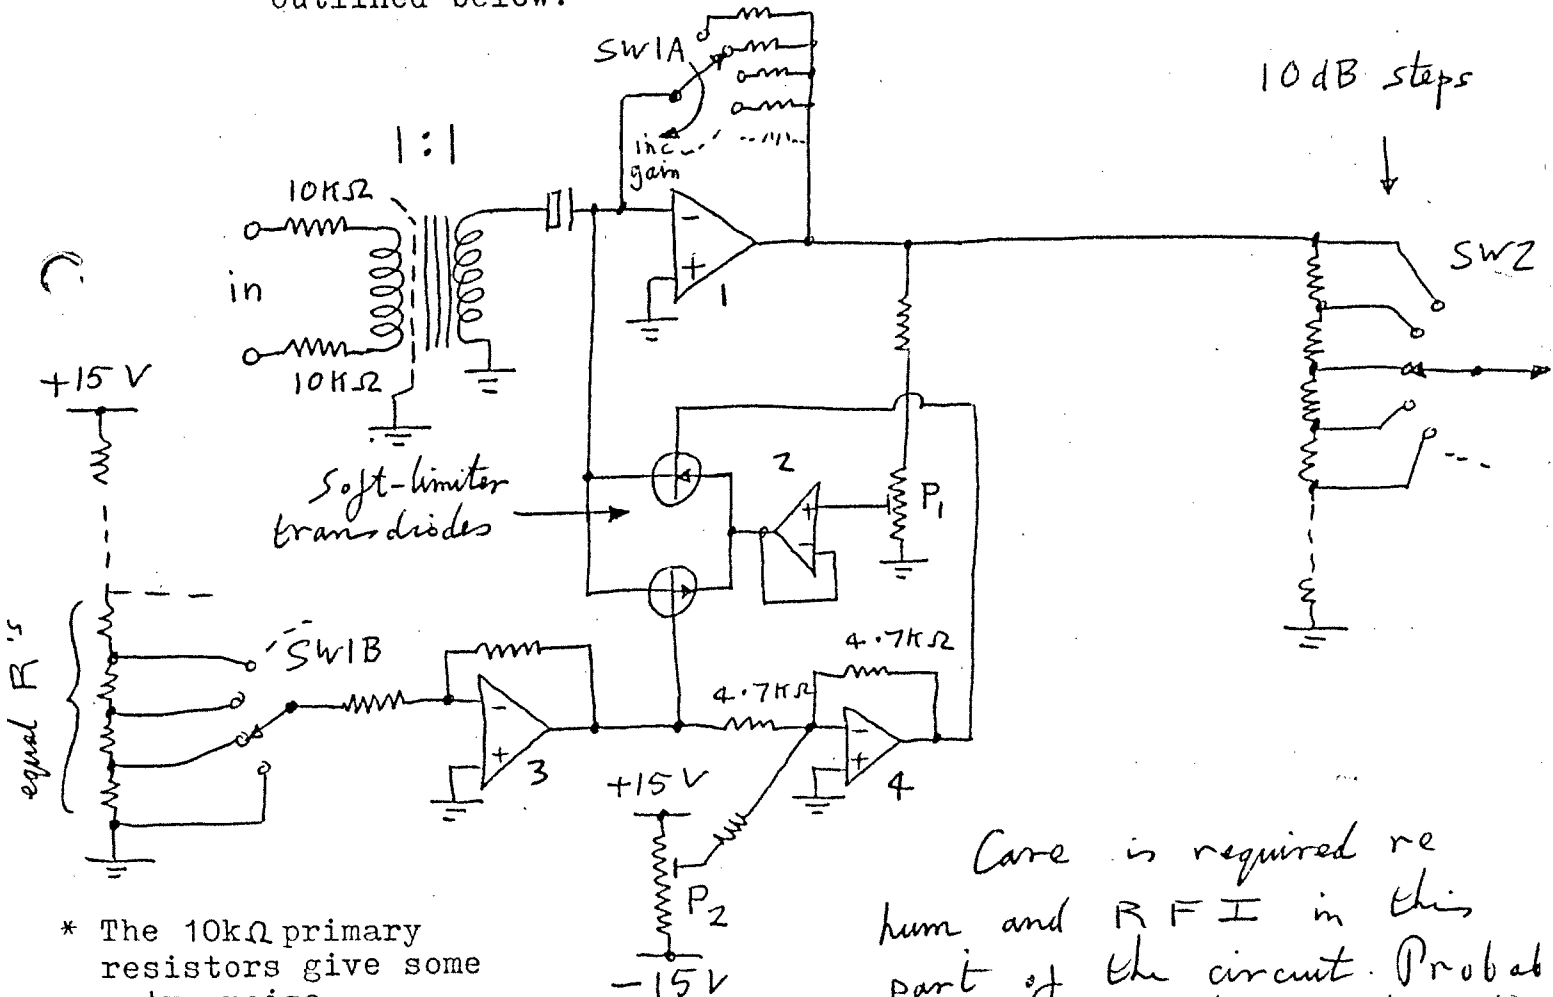 outlined below.
SW1A
10 dB steps
1:1
inc
gain
10KΩ
-
+
1
SW2
in
10KΩ
+15 V
2
+
-
P1
Soft-limiter
transdiodes
SW1B
equal R's
4.7KΩ
4.7KΩ
-
+
3
-
+
4
+15 V
P2
-15 V
Care is required re
hum and RFI in this
part of the circuit. Probab
* The 10kΩ primary
resistors give some
noise